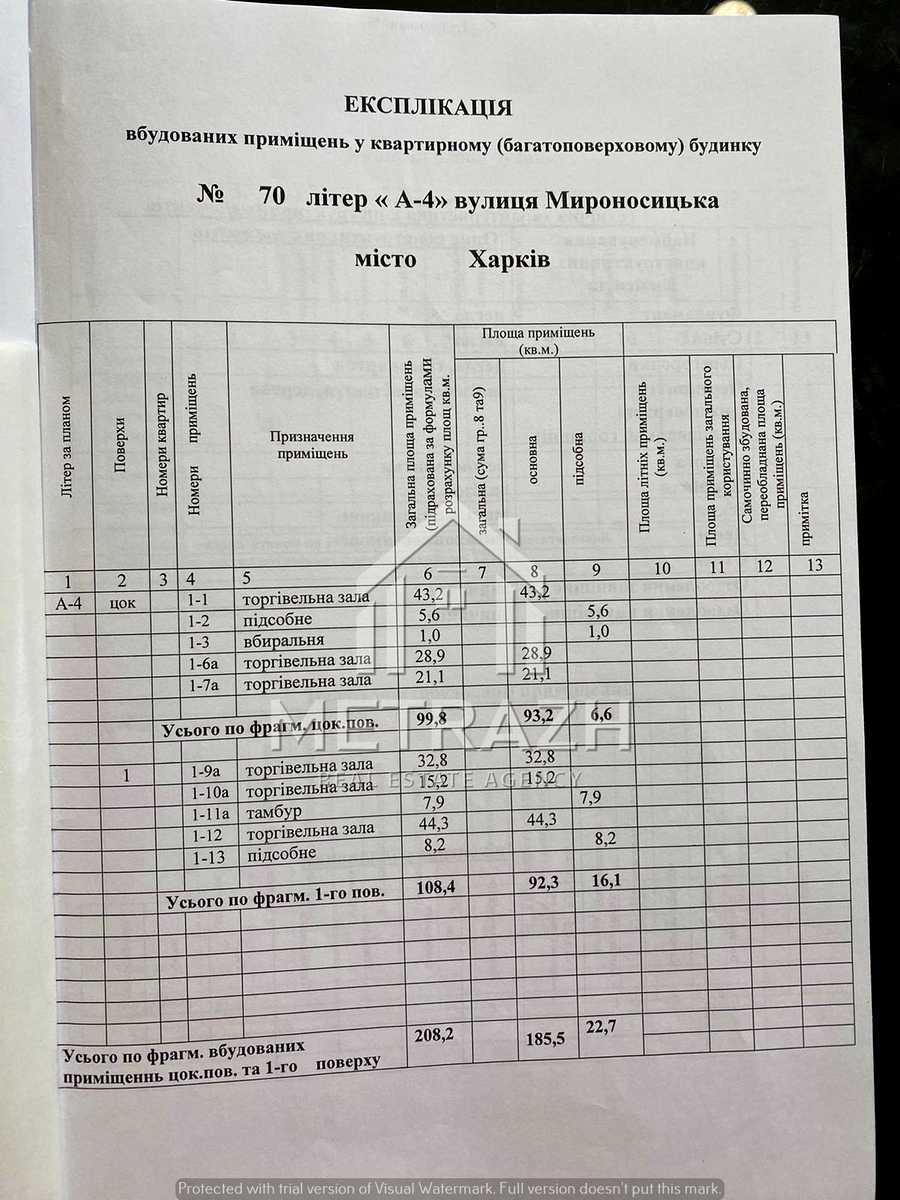 ЕКСПЛІКАЦІЯ
вбудованих приміщень у квартирному (багатоповерховому) будинку
№ 70 літер « А-4» вулиця Мироносицька
місто Харків
Літер за планом
Поверхи
Номери квартир
Номери приміщень
Призначення приміщень
Загальна площа приміщень (підрахована за формулами розрахунку площ кв.м.
Площа приміщень (кв.м.)
загальна (сума гр..8 та9)
основна
підсобна
Площа літніх приміщень (кв.м.)
Площа приміщень загального користування
Самочинно збудована, переобладнана площа приміщень (кв.м.)
примітка
1 2 3 4 5 6 7 8 9 10 11 12 13
А-4 цок 1-1 торгівельна зала 43,2 43,2
1-2 підсобне 5,6 5,6
1-3 вбиральня 1,0 1,0
1-6а торгівельна зала 28,9 28,9
1-7а торгівельна зала 21,1 21,1
Усього по фрагм. цок.пов. 99,8 93,2 6,6
1 1-9а торгівельна зала 32,8 32,8
1-10а торгівельна зала 15,2 15,2
1-11а тамбур 7,9 7,9
1-12 торгівельна зала 44,3 44,3
1-13 підсобне 8,2 8,2
Усього по фрагм. 1-го пов. 108,4 92,3 16,1
Усього по фрагм. вбудованих
приміщеннь цок.пов. та 1-го поверху 208,2 185,5 22,7
METRAZH
REAL ESTATE AGENCY
Protected with trial version of Visual Watermark. Full version doesn't put this mark.